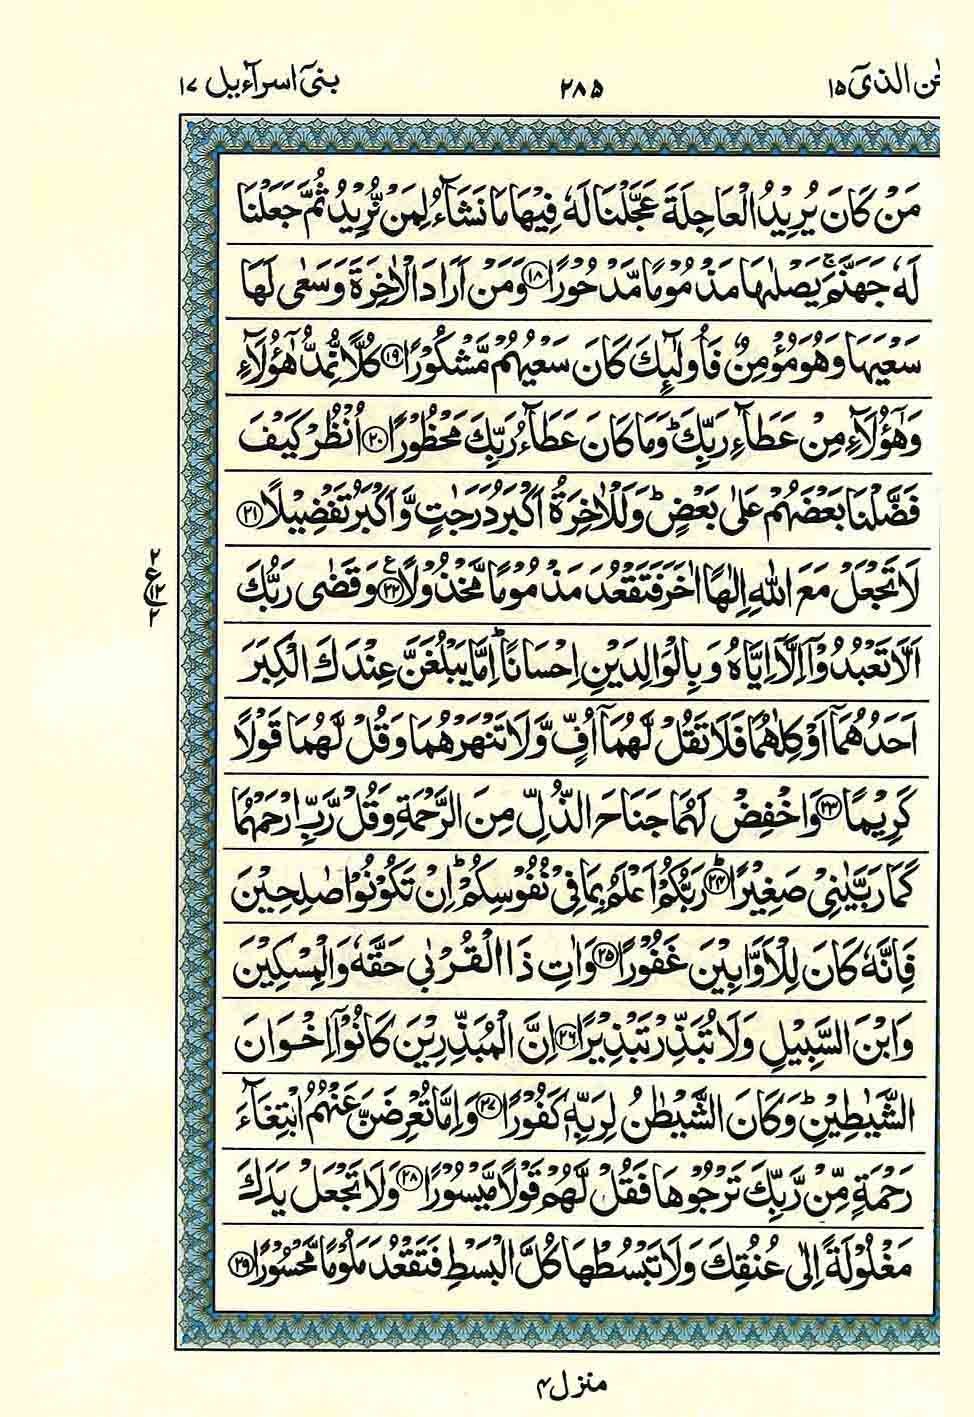 سبحٰن الذیٓ ۱۵
۲۸۵
بنیٓ اسرآءیل ۱۷
مَنْ كَانَ یُرِیْدُ الْعَاجِلَةَ عَجَّلْنَا لَهٗ فِیْهَا مَا نَشَآءُ لِمَنْ نُّرِیْدُ ثُمَّ جَعَلْنَا
لَهٗ جَهَنَّمَ ۚ یَصْلٰىهَا مَذْمُوْمًا مَّدْحُوْرًا ۱۸ وَمَنْ اَرَادَ الْاٰخِرَةَ وَسَعٰی لَهَا
سَعْیَهَا وَهُوَ مُؤْمِنٌ فَاُولٰٓئِكَ كَانَ سَعْیُهُمْ مَّشْكُوْرًا ۱۹ كُلًّا نُّمِدُّ هٰۤؤُلَآءِ
وَهٰۤؤُلَآءِ مِنْ عَطَآءِ رَبِّكَ ؕ وَمَا كَانَ عَطَآءُ رَبِّكَ مَحْظُوْرًا ۲۰ اُنْظُرْ كَیْفَ
فَضَّلْنَا بَعْضَهُمْ عَلٰی بَعْضٍ ؕ وَلَلْاٰخِرَةُ اَكْبَرُ دَرَجٰتٍ وَّاَكْبَرُ تَفْضِیْلًا ۲۱
لَا تَجْعَلْ مَعَ اللّٰهِ اِلٰهًا اٰخَرَ فَتَقْعُدَ مَذْمُوْمًا مَّخْذُوْلًا ۲۲ وَقَضٰی رَبُّكَ
۲
ع
۱۲
۲
اَلَّا تَعْبُدُوْۤا اِلَّاۤ اِیَّاهُ وَبِالْوَالِدَیْنِ اِحْسَانًا ؕ اِمَّا یَبْلُغَنَّ عِنْدَكَ الْكِبَرَ
اَحَدُهُمَاۤ اَوْ كِلٰهُمَا فَلَا تَقُلْ لَّهُمَاۤ اُفٍّ وَّلَا تَنْهَرْهُمَا وَقُلْ لَّهُمَا قَوْلًا
كَرِیْمًا ۲۳ وَاخْفِضْ لَهُمَا جَنَاحَ الذُّلِّ مِنَ الرَّحْمَةِ وَقُلْ رَّبِّ ارْحَمْهُمَا
كَمَا رَبَّیٰنِیْ صَغِیْرًا ؕ ۲۴ رَبُّكُمْ اَعْلَمُ بِمَا فِیْ نُفُوْسِكُمْ ؕ اِنْ تَكُوْنُوْا صٰلِحِیْنَ
فَاِنَّهٗ كَانَ لِلْاَوَّابِیْنَ غَفُوْرًا ۲۵ وَاٰتِ ذَا الْقُرْبٰی حَقَّهٗ وَالْمِسْكِیْنَ
وَابْنَ السَّبِیْلِ وَلَا تُبَذِّرْ تَبْذِیْرًا ۲۶ اِنَّ الْمُبَذِّرِیْنَ كَانُوْۤا اِخْوَانَ
الشَّیٰطِیْنِ ؕ وَكَانَ الشَّیْطٰنُ لِرَبِّهٖ كَفُوْرًا ۲۷ وَاِمَّا تُعْرِضَنَّ عَنْهُمُ ابْتِغَآءَ
رَحْمَةٍ مِّنْ رَّبِّكَ تَرْجُوْهَا فَقُلْ لَّهُمْ قَوْلًا مَّیْسُوْرًا ۲۸ وَلَا تَجْعَلْ یَدَكَ
مَغْلُوْلَةً اِلٰی عُنُقِكَ وَلَا تَبْسُطْهَا كُلَّ الْبَسْطِ فَتَقْعُدَ مَلُوْمًا مَّحْسُوْرًا ۲۹
منزل ۴